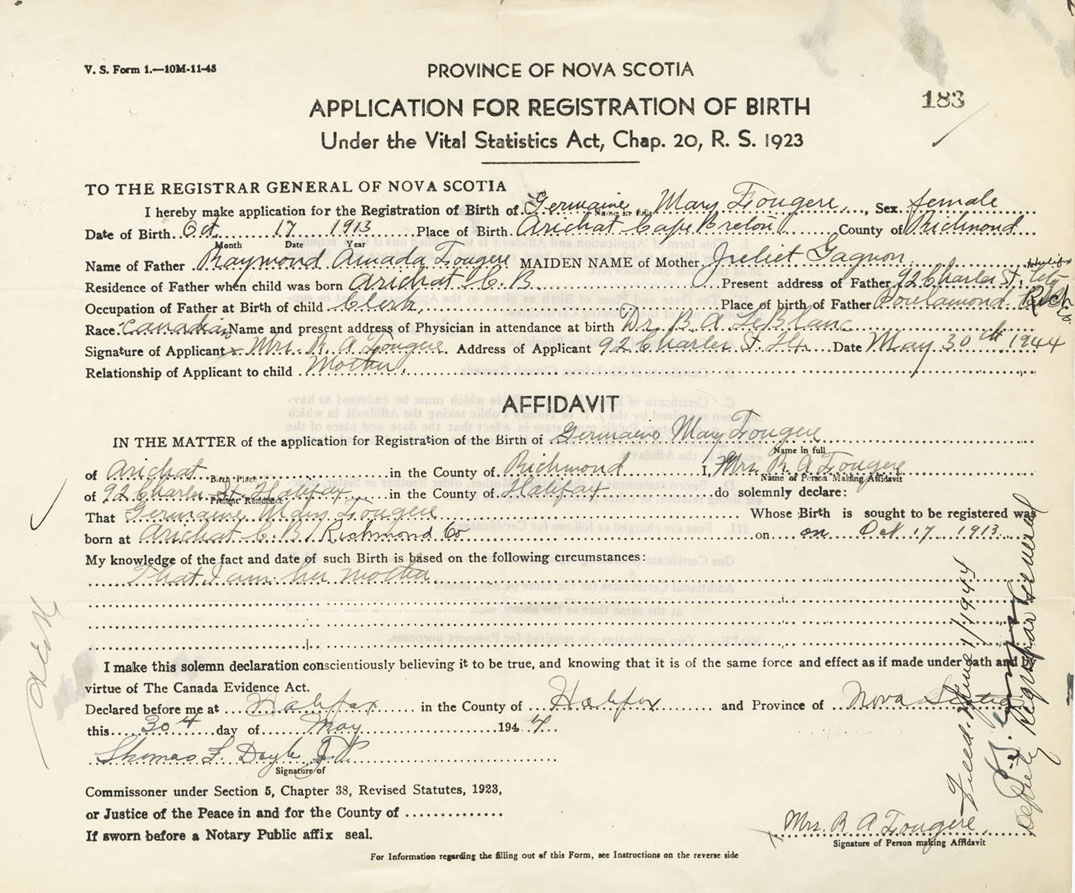 V. S. Form 1.—10M-11-43
PROVINCE OF NOVA SCOTIA
183
APPLICATION FOR REGISTRATION OF BIRTH
Under the Vital Statistics Act, Chap. 20, R. S. 1923
TO THE REGISTRAR GENERAL OF NOVA SCOTIA
I hereby make application for the Registration of Birth of Germaine Mary Fougere, Sex female
Names in full
Date of Birth Oct 17 1913 Place of Birth Arichat Cape Breton County of Richmond
Month Date Year
Name of Father Raymond Amada Fougere MAIDEN NAME of Mother Juliet Gagnon
Residence of Father when child was born Arichat C. B. Present address of Father 92 Charles St. Halifax
Occupation of Father at Birth of child Clerk Place of birth of Father Rich
Race Canadian Name and present address of Physician in attendance at birth Dr. B. A. LeBlanc
Signature of Applicant x Mrs. R. A Fougere Address of Applicant 92 Charles St. Hx Date May 30th 1944
Relationship of Applicant to child Mother,
AFFIDAVIT
IN THE MATTER of the application for Registration of the Birth of Germaine Mary Fougere
Name in full
of Arichat in the County of Richmond I, Mrs. R A Fougere
Birth Place Name of Person Making Affidavit
of 92 Charles St. Halifax in the County of Halifax do solemnly declare:
Present Residence
That Germaine Fougere Whose Birth is sought to be registered was
born at Arichat C. B. Richmond Co on on Oct 17 1913
My knowledge of the fact and date of such Birth is based on the following circumstances:
That I am her mother
I make this solemn declaration conscientiously believing it to be true, and knowing that it is of the same force and effect as if made under oath and by
virtue of The Canada Evidence Act.
Declared before me at Halifax in the County of Halifax and Province of Nova Scotia
this 30th day of May 1944
Thomas F. Doyle J P
Signature of
Commissoner under Section 5, Chapter 38, Revised Statutes, 1923,
or Justice of the Peace in and for the County of
If sworn before a Notary Public affix seal.
Mrs. R A Fougere
Signature of Person making Affidavit
For Information regarding the filling out of this Form, see Instructions on the reverse side
Filed June 1/1944
Deputy Registrar General